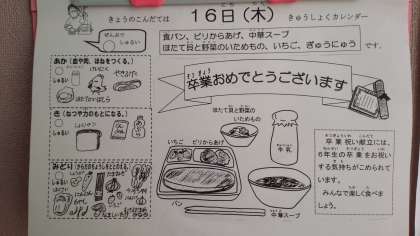 きょうのこんだては 16日(木) きゅうしょくカレンダー
食パン、ピリからあげ、中華スープ
ほたて貝と野菜のいためもの、いちご、ぎゅうにゅう です。
ぜんぶで
しゅるい
卒業おめでとうございます
あか(血や肉、ほねをつくる。)
しゅるい
き(ねつや力のもとになる。)
しゅるい
みどり(からだのちょうしをととのえる)
しゅるい
ほたて貝と野菜の
いためもの
いちご ピリからあげ
牛乳
パン
中華スープ
卒業祝い献立には、
6年生の卒業をお祝い
する気持ちがこめられて
います。
みんなで楽しく食べま
しょう。